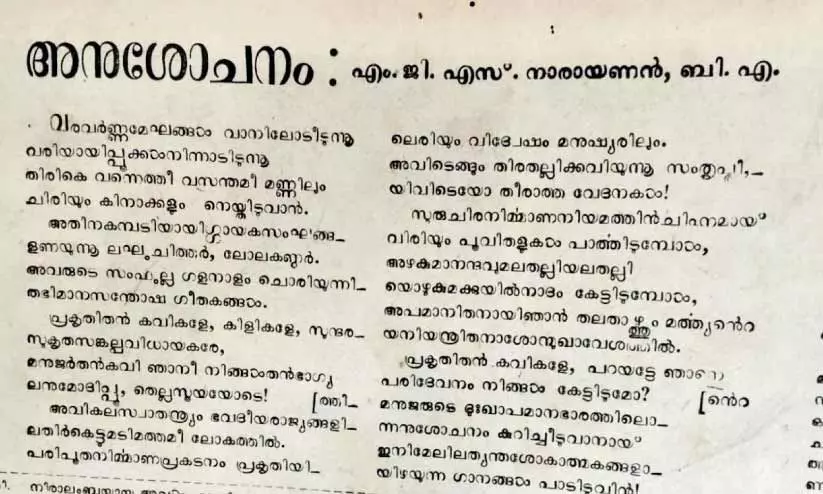 അനുശോചനം : എം. ജി. എസ്. നാരായണൻ, ബി. എ.
വരവർണ്ണമേഘങ്ങൾ വാനിലോടീടുന്നൂ
വരിയായിപ്പൂക്കൾനിന്നാടിടുന്നൂ
തിരികെ വന്നെത്തീ വസന്തമീ മണ്ണിലും
ചിരിയും കിനാക്കളും നെയ്തിടുവാൻ.
അതിനകമ്പടിയായിഗ്ഗായകസംഘങ്ങ—
ളണയുന്നൂ ലഘുചിത്തർ, ലോലകണ്ഠർ.
അവരുടെ സംഫുല്ല ഗളനാളം ചൊരിയുന്നി—
തഭിമാനസന്തോഷ ഗീതകങ്ങൾ.
പ്രകൃതിതൻ കവികളേ, കിളികളേ, സുന്ദര—
സുകൃതസങ്കല്പവിധായകരേ,
മനുജർതൻകവി ഞാനീ നിങ്ങൾതൻഭാഗ്യ
ലനുമോദിപ്പൂ, തെല്ലസൂയയോടെ! [ത്തി—
അവികലസ്വാതന്ത്ര്യം ഭവദീയരാജ്യങ്ങളി—
ലതിർകെട്ടുമടിമത്തമീ ലോകത്തിൽ.
പരിപൂതനിർമ്മാണപ്രകടനം പ്രകൃതിയി—
ലെരിയും വിദ്വേഷം മനുഷ്യരിലും.
അവിടെങ്ങും തിരതല്ലിക്കവിയുന്നൂ സംതൃപ്തി,—
യിവിടെയോ തീരാത്ത വേദനകൾ!
സുരുചിരനിർമ്മാണനിയമത്തിൻചിഹ്നമായ്
വിരിയും പൂവിതളുകൾ പാർത്തിടുമ്പോൾ,
അഴകുമാനന്ദവുമലതല്ലിയലതല്ലി
യൊഴുകുമക്കുയിൽനാദം കേട്ടിടുമ്പോൾ,
അപമാനിതനായിഞാൻ തലതാഴ്ത്തും മർത്ത്യന്റെ
യനിയന്ത്രിതനാശോന്മുഖാവേശത്തിൽ.
പ്രകൃതിതൻ കവികളേ, പറയട്ടേ ഞാനെ
പരിദേവനം നിങ്ങൾ കേട്ടിടുമോ? [ന്റെ
മനുജരുടെ ദുഃഖാപമാനഭാരത്തിലൊ—
ന്നനുശോചനം കുറിച്ചീടുവാനായ്
ഇനിമേലിലത്യന്തശോകാത്മകങ്ങളാ—
യിഴയുന്ന ഗാനങ്ങൾ പാടിടുവിൻ!